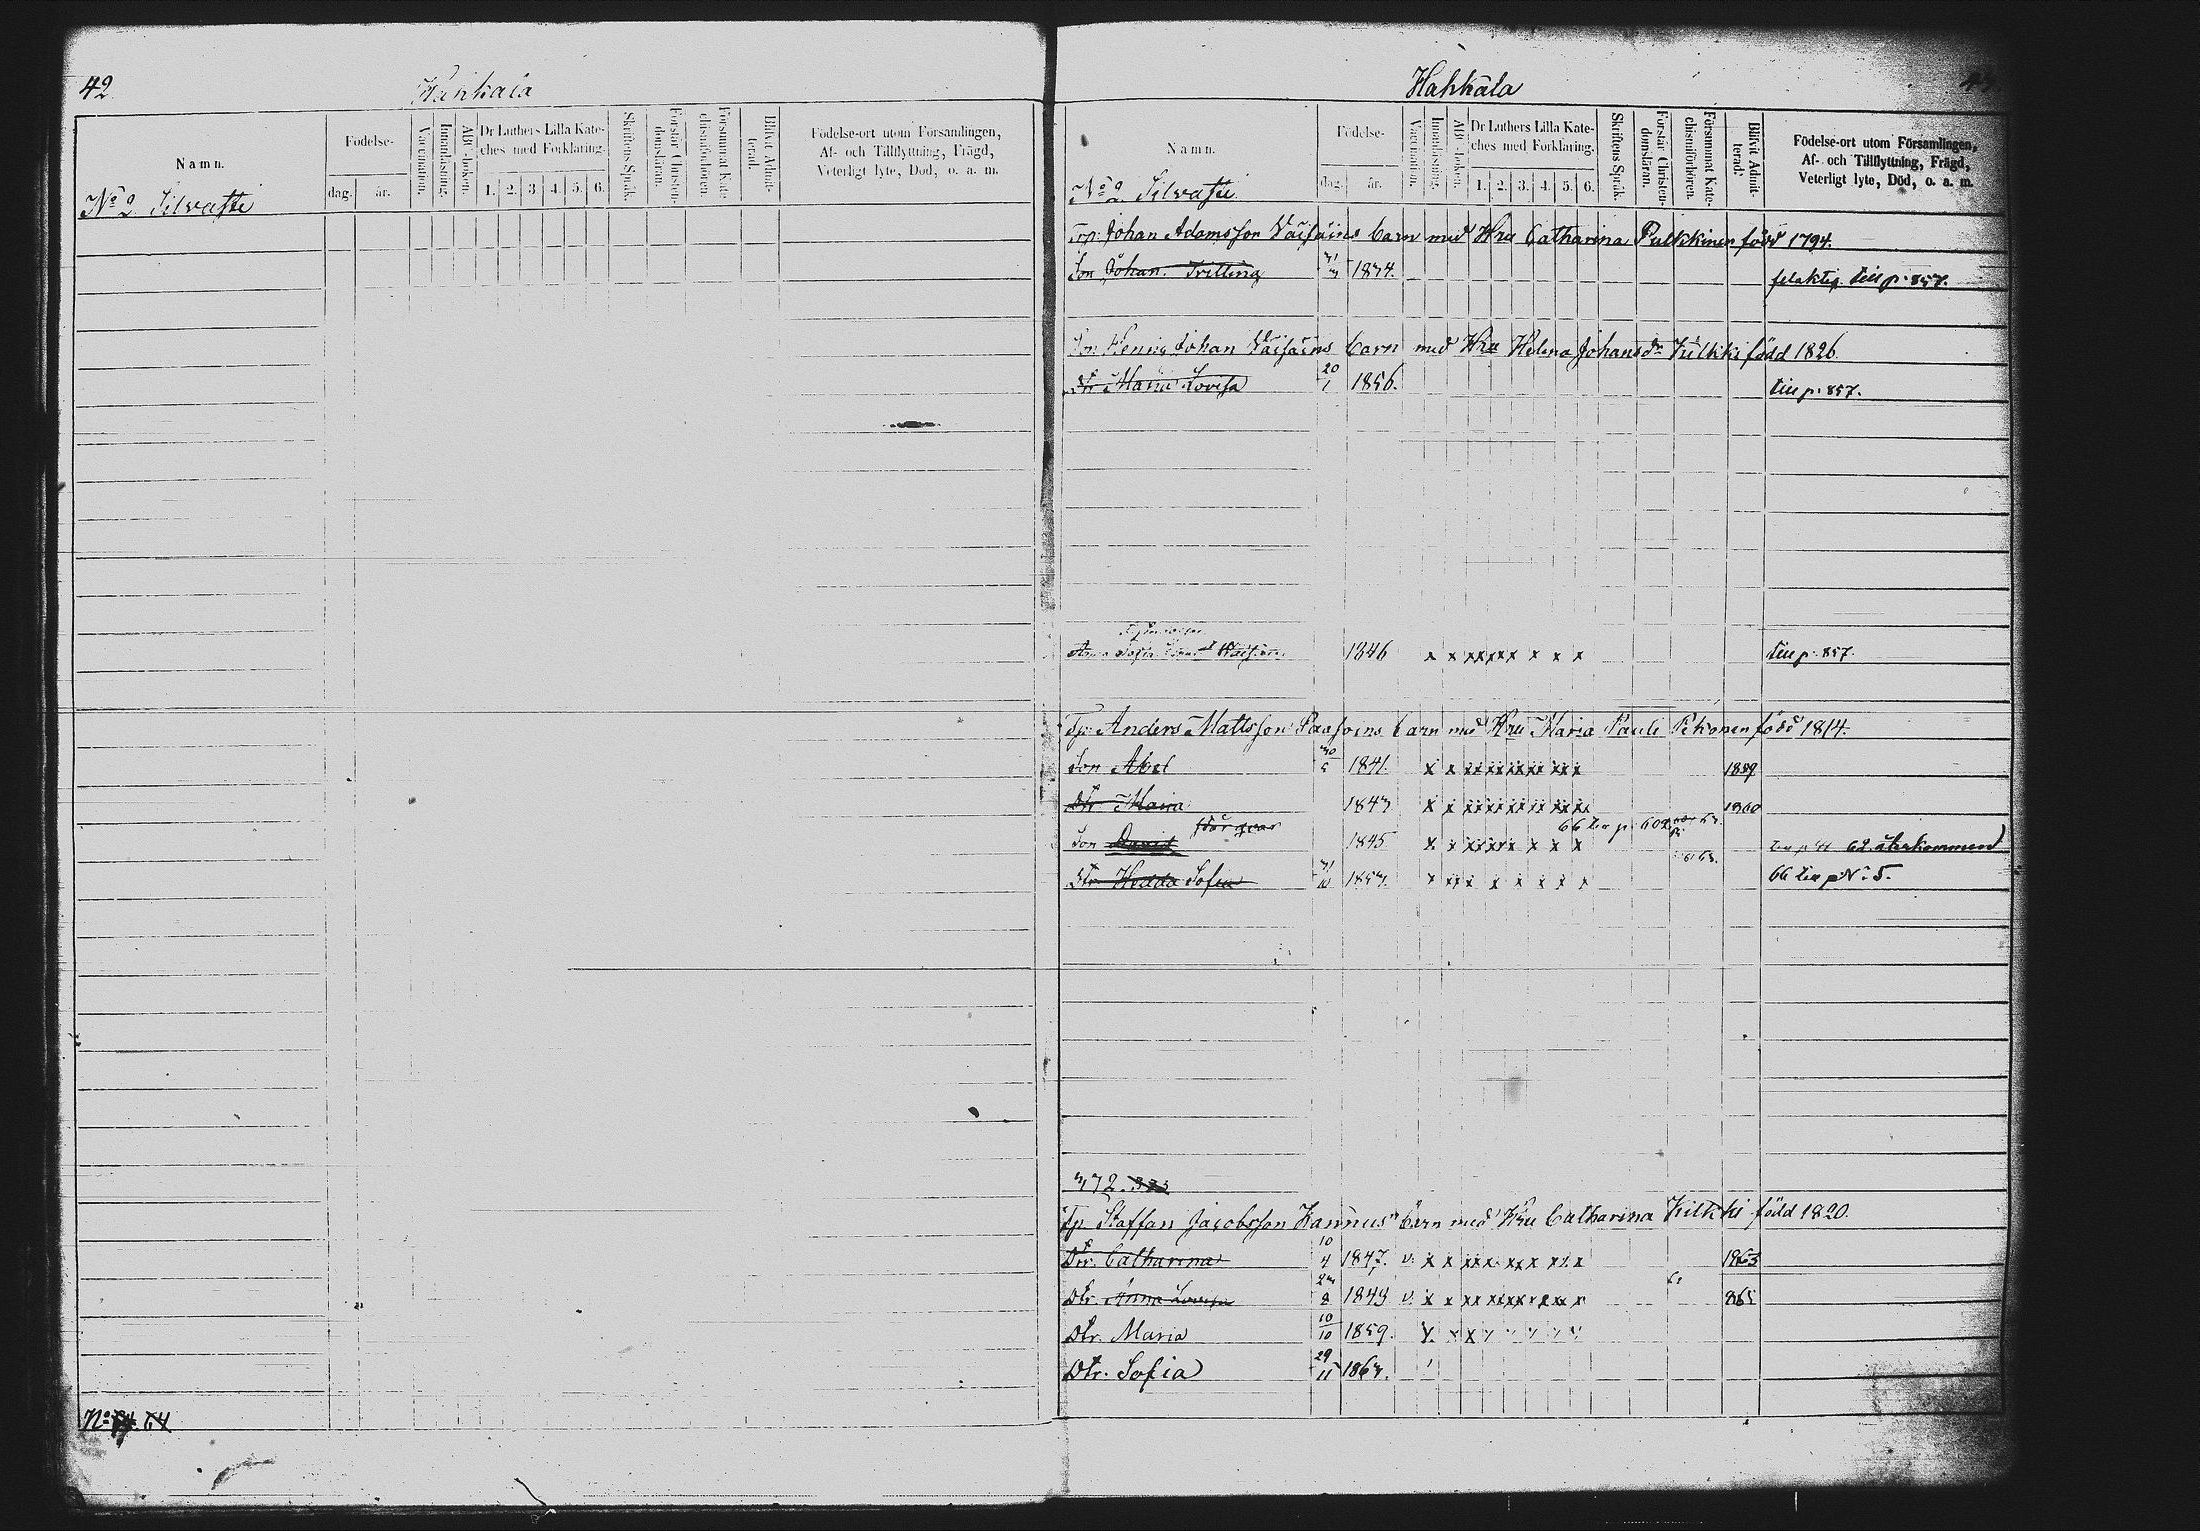 42
Hahkala
Namn.
Födelse-
dag. år.
Vaccination.
Innanläsning.
ABC-boken.
Dr Luthers Lilla Kate-
ches med Förklaring.
1. 2. 3. 4. 5. 6.
Skriftens Språk.
Förstår Christen-
domsläran.
Försummat Kate-
chismiförhören.
Blifvit Admit-
terad.
Födelse-ort utom Församlingen,
Af- och Tillflyttning, Frägd,
Veterligt lyte, Död, o. a. m.
No 2 Silvasti
Hahkala
Namn.
Födelse-
dag. år.
Vaccination.
Innanläsning.
ABC-boken.
Dr Luthers Lilla Kate-
ches med Förklaring.
1. 2. 3. 4. 5. 6.
Skriftens Språk.
Förstår Christen-
domsläran.
Försummat Kate-
chismiförhören.
Blifvit Admit-
terad.
Födelse-ort utom Församlingen,
Af- och Tillflyttning, Frägd,
Veterligt lyte, Död, o. a. m.
No 2. Silvasti
Johan Adamsson Väisäins barn med Hru Catharina Pulkkinen född 1794.
Son Johan. Trilling 1834. felaktig. till p. 857.
Henrig Johan Väisäins barn med Hru Helena Johansdr Kilkki född 1826.
Dtr Maria Lovisa 20/1 1856. till p. 857.
Anna Sofia 1846 x x xxxxx x x x till p. 857.
Tp. Anders Mattsson Paasoins barn med Hru Maria Pauli Pekonen född 1814.
Son Abel 30/5 1841. x x xx xx xx xx xx x 1859
Dtr Maria 1843 x x xx xx xx xx xx x 1860
66 till p. 602
Son David 1845 x x xxxxx x x x 62 återkommend
Dtr Hedda Sofia 31/10 1853. x xx x x x x x x 66 till p No 5.
372. 323
Tp. Staffan Jacobsson Kannus barn med Hru Catharina Kilkki född 1820.
Dtr. Catharina 10/4 1847. v. x x xx x xx x xx x 1863
Dtr. Anna Lovisa 23/8 1849 v. x x xx xxxx x xx x 865
Dtr. Maria 10/10 1859.
Dtr. Sofia 29/11 1863.
No 64